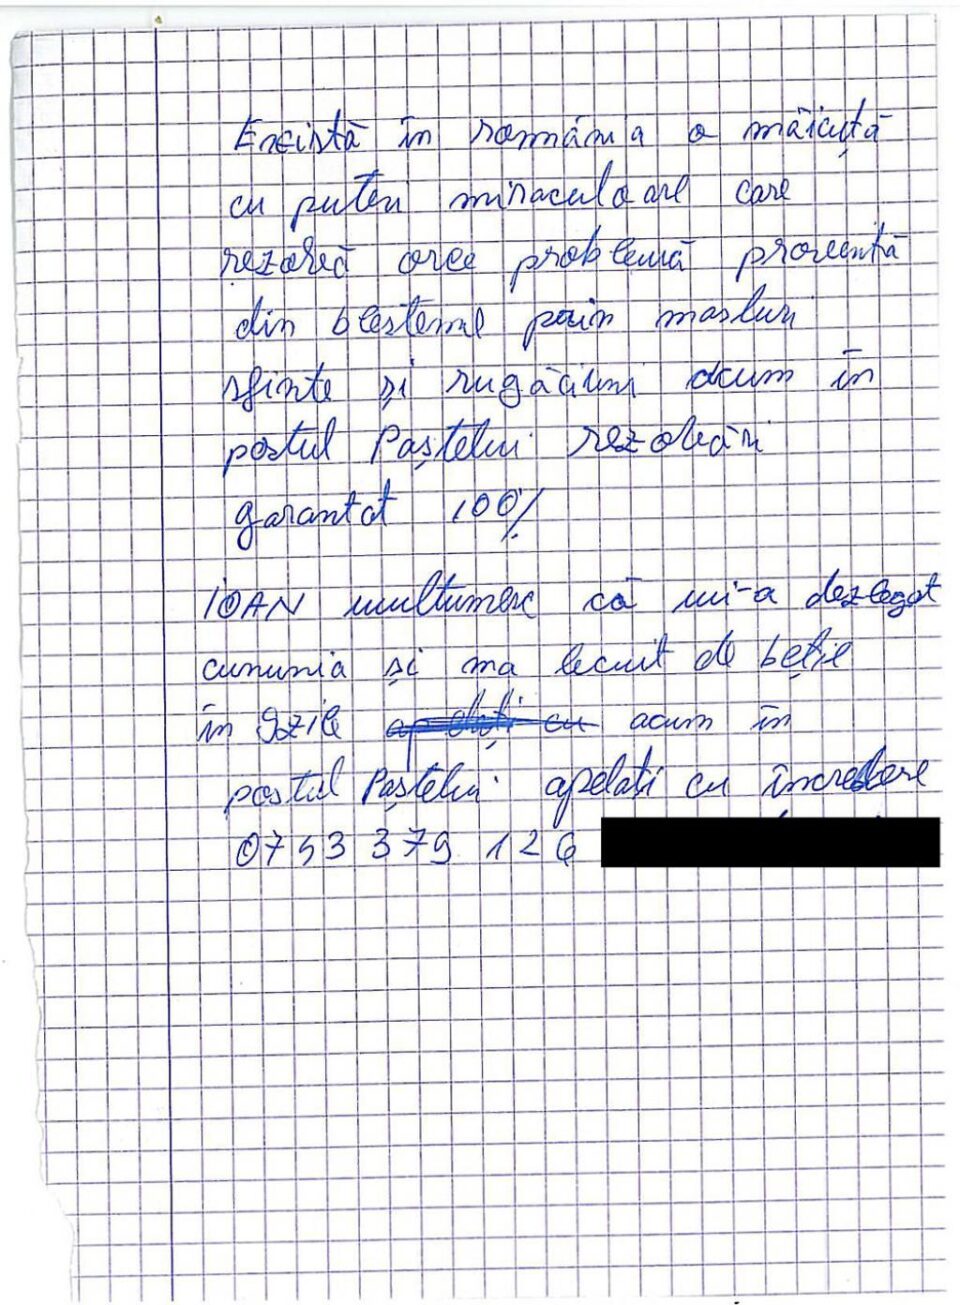 Encistă în românia o măicuță
cu puteri miraculoare care
rezolvă orce problemă provenită
din blestemul prin masluri
sfinte și rugăciuni acum în
postul Paștelui rezolvări
garantat 100%
IOAN multumesc că mi-a dezlegat
cununia și ma lecuit de beție
în 9zile apelați cu acum în
postul Paștelui apelati cu încredere
0753 379 126